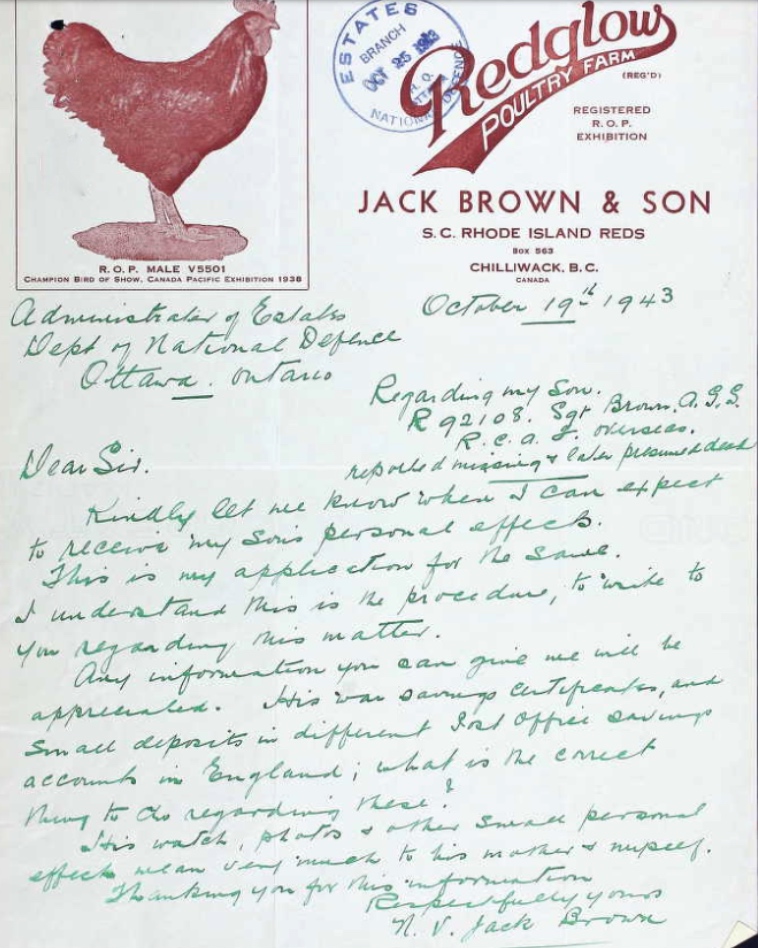 ESTATES
BRANCH
OCT 25 1943
NATIONAL DEFENCE
Redglow
POULTRY FARM
(REG'D)
REGISTERED
R.O.P.
EXHIBITION
JACK BROWN & SON
S.C. RHODE ISLAND REDS
Box 563
CHILLIWACK, B.C.
CANADA
R.O.P. MALE V5501
CHAMPION BIRD OF SHOW, CANADA PACIFIC EXHIBITION 1938
October 19th 1943
Administrator of Estates
Dept of National Defence
Ottawa. Ontario
Regarding my Son.
R 92108. Sgt Brown. A.G.S.
R.C.A.F. overseas.
reported missing & later presumed dead
Dear Sir.
Kindly let me know when I can expect
to receive my Son's personal effects.
This is my application for the same.
I understand this is the procedure, to write to
you regarding this matter.
Any information you can give me will be
appreciated. His war savings certificates, and
small deposits in different Post Office savings
accounts in England; what is the correct
thing to do regarding these?
His watch, photos & other small personal
effects mean very much to his mother & myself.
Thanking you for this information
Respectfully yours
N. V. Jack Brown